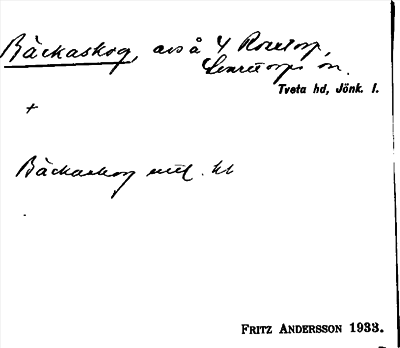 Bäckaskog, avs å 4 Rosetorp,
Lekeryds sn.
Tveta hd, Jönk. l.
+
Bäckaskog utt. bl
FRITZ ANDERSSON 1933.